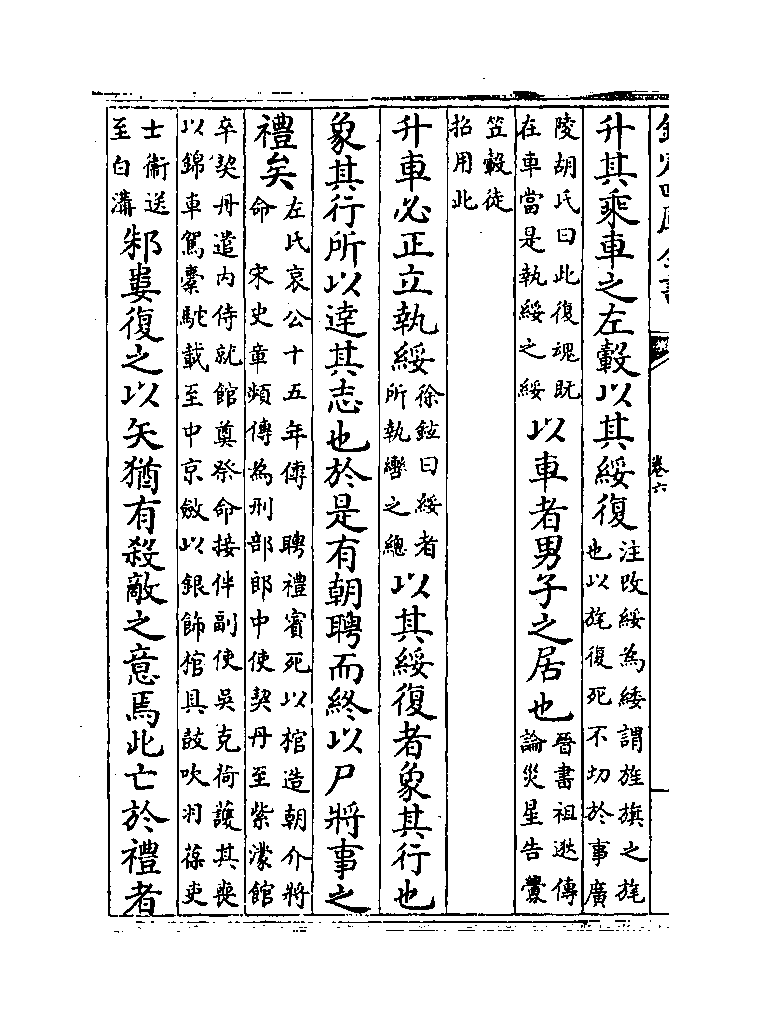 欽定四庫全書
卷六
升其乘車之左轂以其綏復
注改綏為緌謂旌旗之旄
也以旄復死不切於事廣
陵胡氏曰此復魂既
在車當是執綏之綏
以車者男子之居也
晉書祖逖傳
論災星告釁
笠轂徒
招用此
升車必正立執綏
徐鉉曰綏者
所執轡之總
以其綏復者象其行也
象其行所以達其志也於是有朝聘而終以尸將事之
禮矣
左氏哀公十五年傳 聘禮賓死以棺造朝介將
命 宋史章頻傳為刑部郎中使契丹至紫濛館
卒契丹遣内侍就館奠祭命接伴副使吳克荷護其喪
以錦車駕橐駝載至中京斂以銀飾棺具鼓吹羽葆吏
士衞送
至白溝
邾婁復之以矢猶有殺敵之意焉此亡於禮者